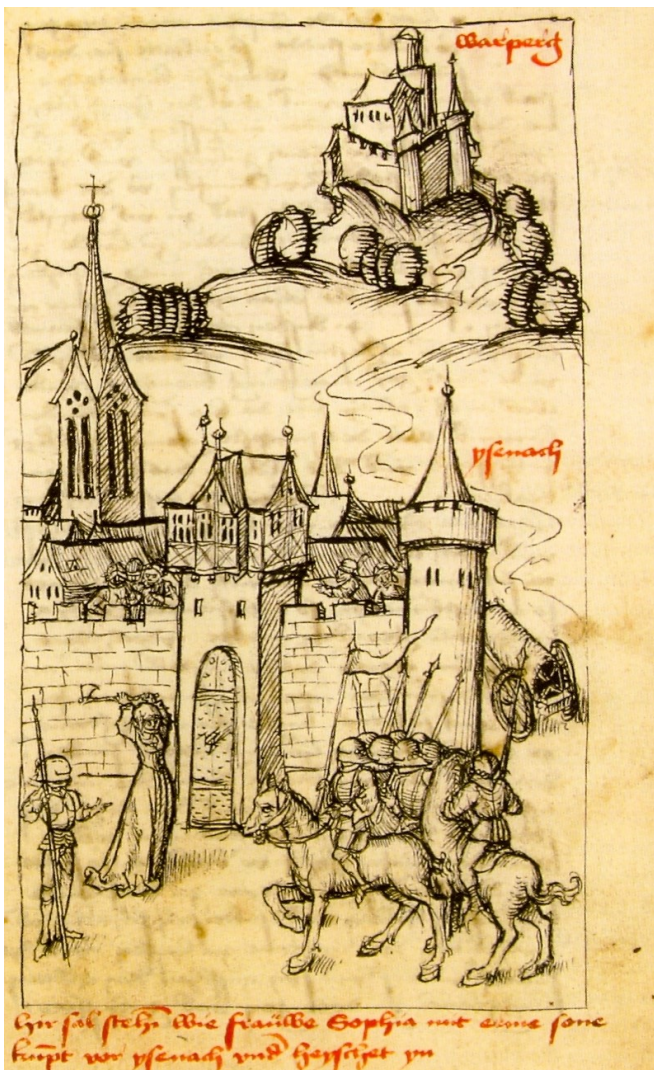 warperg
ysenach
hir sal stehn wie frauwe Sophia mit erme sone
kumpt vor ysenach vnd heyschet yn